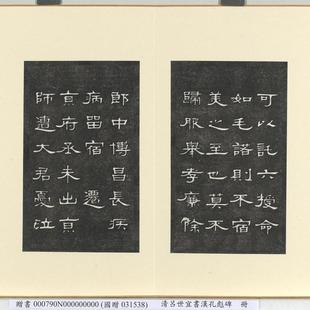 可以託六授命
如毛諾則不宿
美之至也莫不
歸服舉孝廉除
郎中博昌長疾
病留宿遷
京府丞未出京
師遭大君憂泣
贈書 000790N000000000 (國贈 031538) 清呂世宜書漢孔彪碑 冊